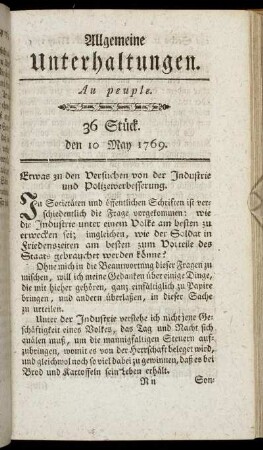 Allgemeine
Unterhaltungen.
Au peuple.
36 Stück.
den 10 May 1769.
Etwas zu den Versuchen von der Industrie
und Polizeyverbesserung.
In Societäten und öffentlichen Schriften ist ver-
schiedentlich die Frage vorgekommen: wie
die Industrie unter einem Volke am besten zu
erwecken sei; imgleichen, wie der Soldat in
Friedenszeiten am besten zum Vorteile des
Staats gebrauchet werden könne?
Ohne mich in die Beantwortung dieser Fragen zu
mischen, will ich meine Gedanken über einige Dinge,
die mit hieher gehören, ganz einfältiglich zu Papire
bringen, und andern überlaßen, in dieser Sache
zu urteilen.
Unter der Industrie verstehe ich nicht jene Ge-
schäftigkeit eines Volkes, das Tag und Nacht sich
quälen muß, um die mannigfaltigen Steuern aufz-
zubringen, womit es von der Herrschaft beleget wird,
und gleichwol noch so viel dabei zu gewinnen, daß es bei
Brod und Kartoffeln sein Leben erhält.
Nn Son-